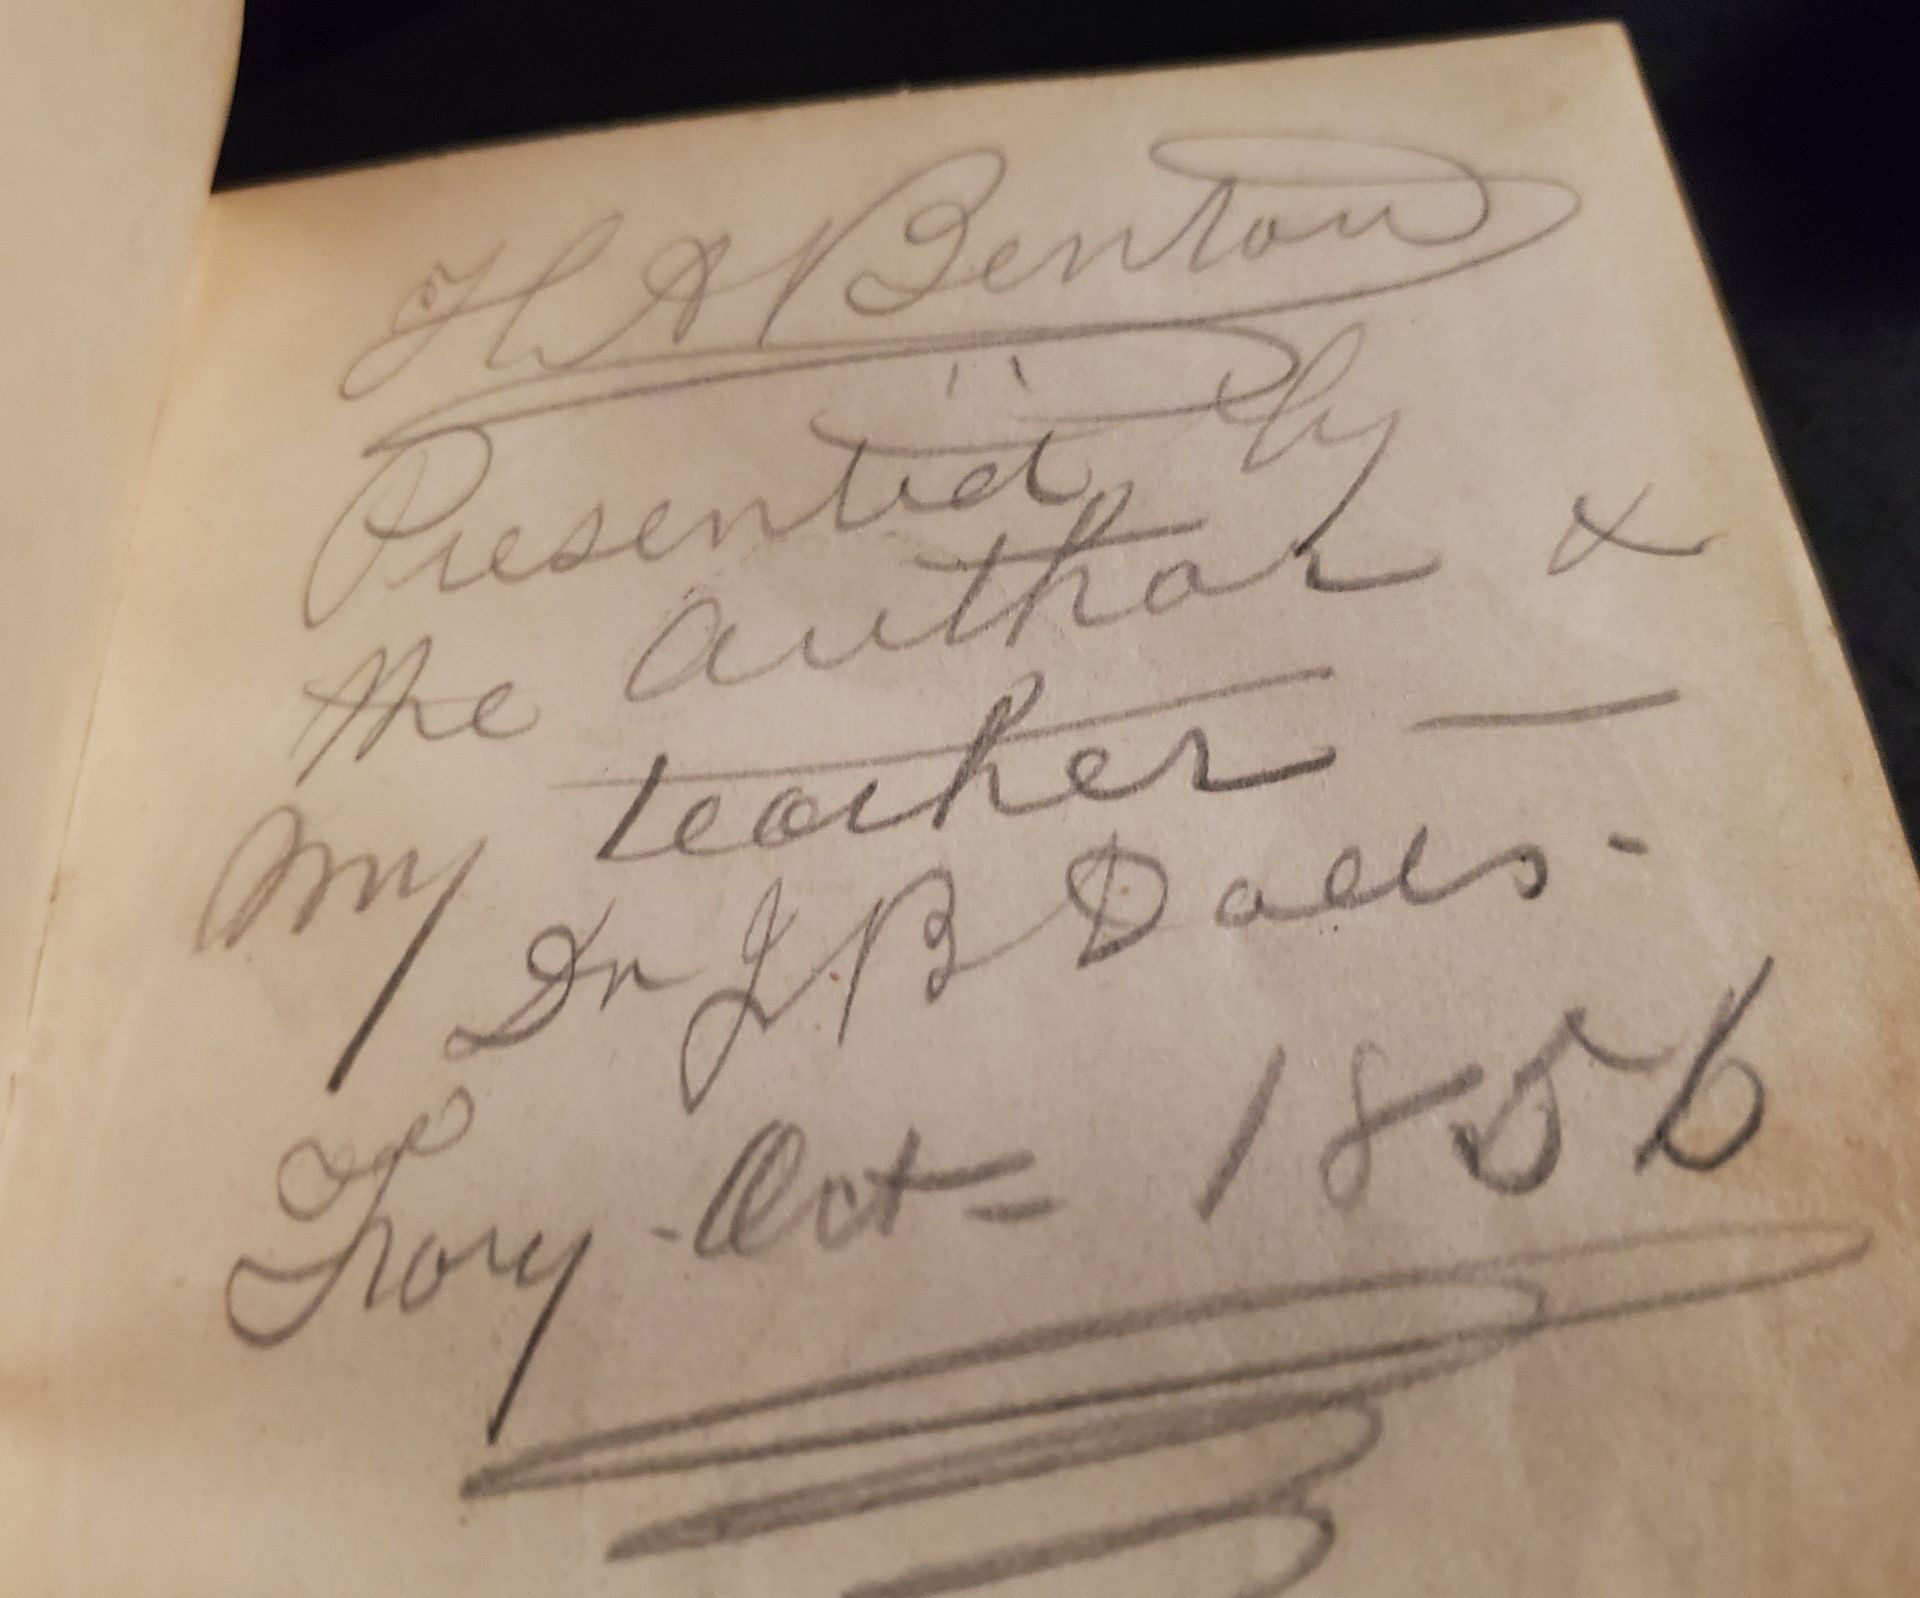 H A Benton
Presented by
the author &
my teacher —
Dr J B
Troy - Oct = 1856